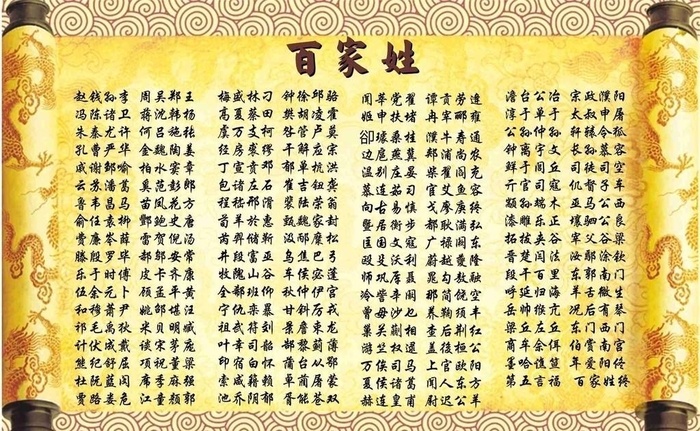 百家姓
赵钱孙李 周吴郑王
冯陈褚卫 蒋沈韩杨
朱秦尤许 何吕施张
孔曹严华 金魏陶姜
戚谢邹喻 柏水窦章
云苏潘葛 奚范彭郎
鲁韦昌马 苗凤花方
俞任袁柳 酆鲍史唐
费廉岑薛 雷贺倪汤
滕殷罗毕 郝邬安常
乐于时傅 皮卞齐康
伍余元卜 顾孟平黄
和穆萧尹 姚邵湛汪
祁毛禹狄 米贝明臧
计伏成戴 谈宋茅庞
熊纪舒屈 项祝董梁
杜阮蓝闵 席季麻强
贾路娄危 江童颜郭
梅盛林刁 钟徐邱骆
高夏蔡田 樊胡凌霍
虞万支柯 昝管卢莫
经房裘缪 干解应宗
丁宣贲邓 郁单杭洪
包诸左石 崔吉钮龚
程嵇邢滑 裴陆荣翁
荀羊於惠 甄麴家封
芮羿储靳 汲邴糜松
井段富巫 乌焦巴弓
牧隗山谷 车侯宓蓬
全郗班仰 秋仲伊宫
宁仇栾暴 甘钭厉戎
祖武符刘 景詹束龙
叶幸司韶 郜黎蓟薄
印宿白怀 蒲邰从鄂
索咸籍赖 卓蔺屠蒙
池乔阴郁 胥能苍双
闻莘党翟 谭贡劳逄
姬申扶堵 冉宰郦雍
郤璩桑桂 濮牛寿通
边扈燕冀 郏浦尚农
温别庄晏 柴瞿阎充
慕连茹习 宦艾鱼容
向古易慎 戈廖庾终
暨居衡步 都耿满弘
匡国文寇 广禄阙东
欧殳沃利 蔚越夔隆
师巩厍聂 晁勾敖融
冷訾辛阚 那简饶空
曾毋沙乜 养鞠须丰
巢关蒯相 查后荆红
游竺权逯 盖益桓公
万俟司马 上官欧阳
夏侯诸葛 闻人东方
赫连皇甫 尉迟公羊
澹台公冶 宗政濮阳
淳于单于 太叔申屠
公孙仲孙 轩辕令狐
钟离宇文 长孙慕容
鲜于闾丘 司徒司空
亓官司寇 仉督子车
颛孙端木 巫马公西
漆雕乐正 壤驷公良
拓跋夹谷 宰父谷梁
晋楚闫法 汝鄢涂钦
段干百里 东郭南门
呼延归海 羊舌微生
岳帅缑亢 况后有琴
梁丘左丘 东门西门
商牟佘佴 伯赏南宫
墨哈谯笪 年爱阳佟
第五言福 百家姓终